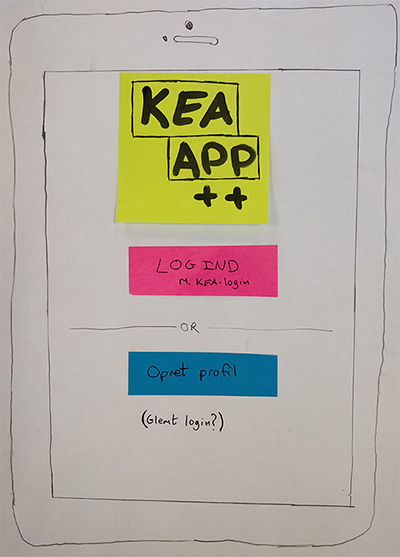 KEA
APP
++
LOGIND
M. KEA-login
OR
Opret profil
(Glemt login?)